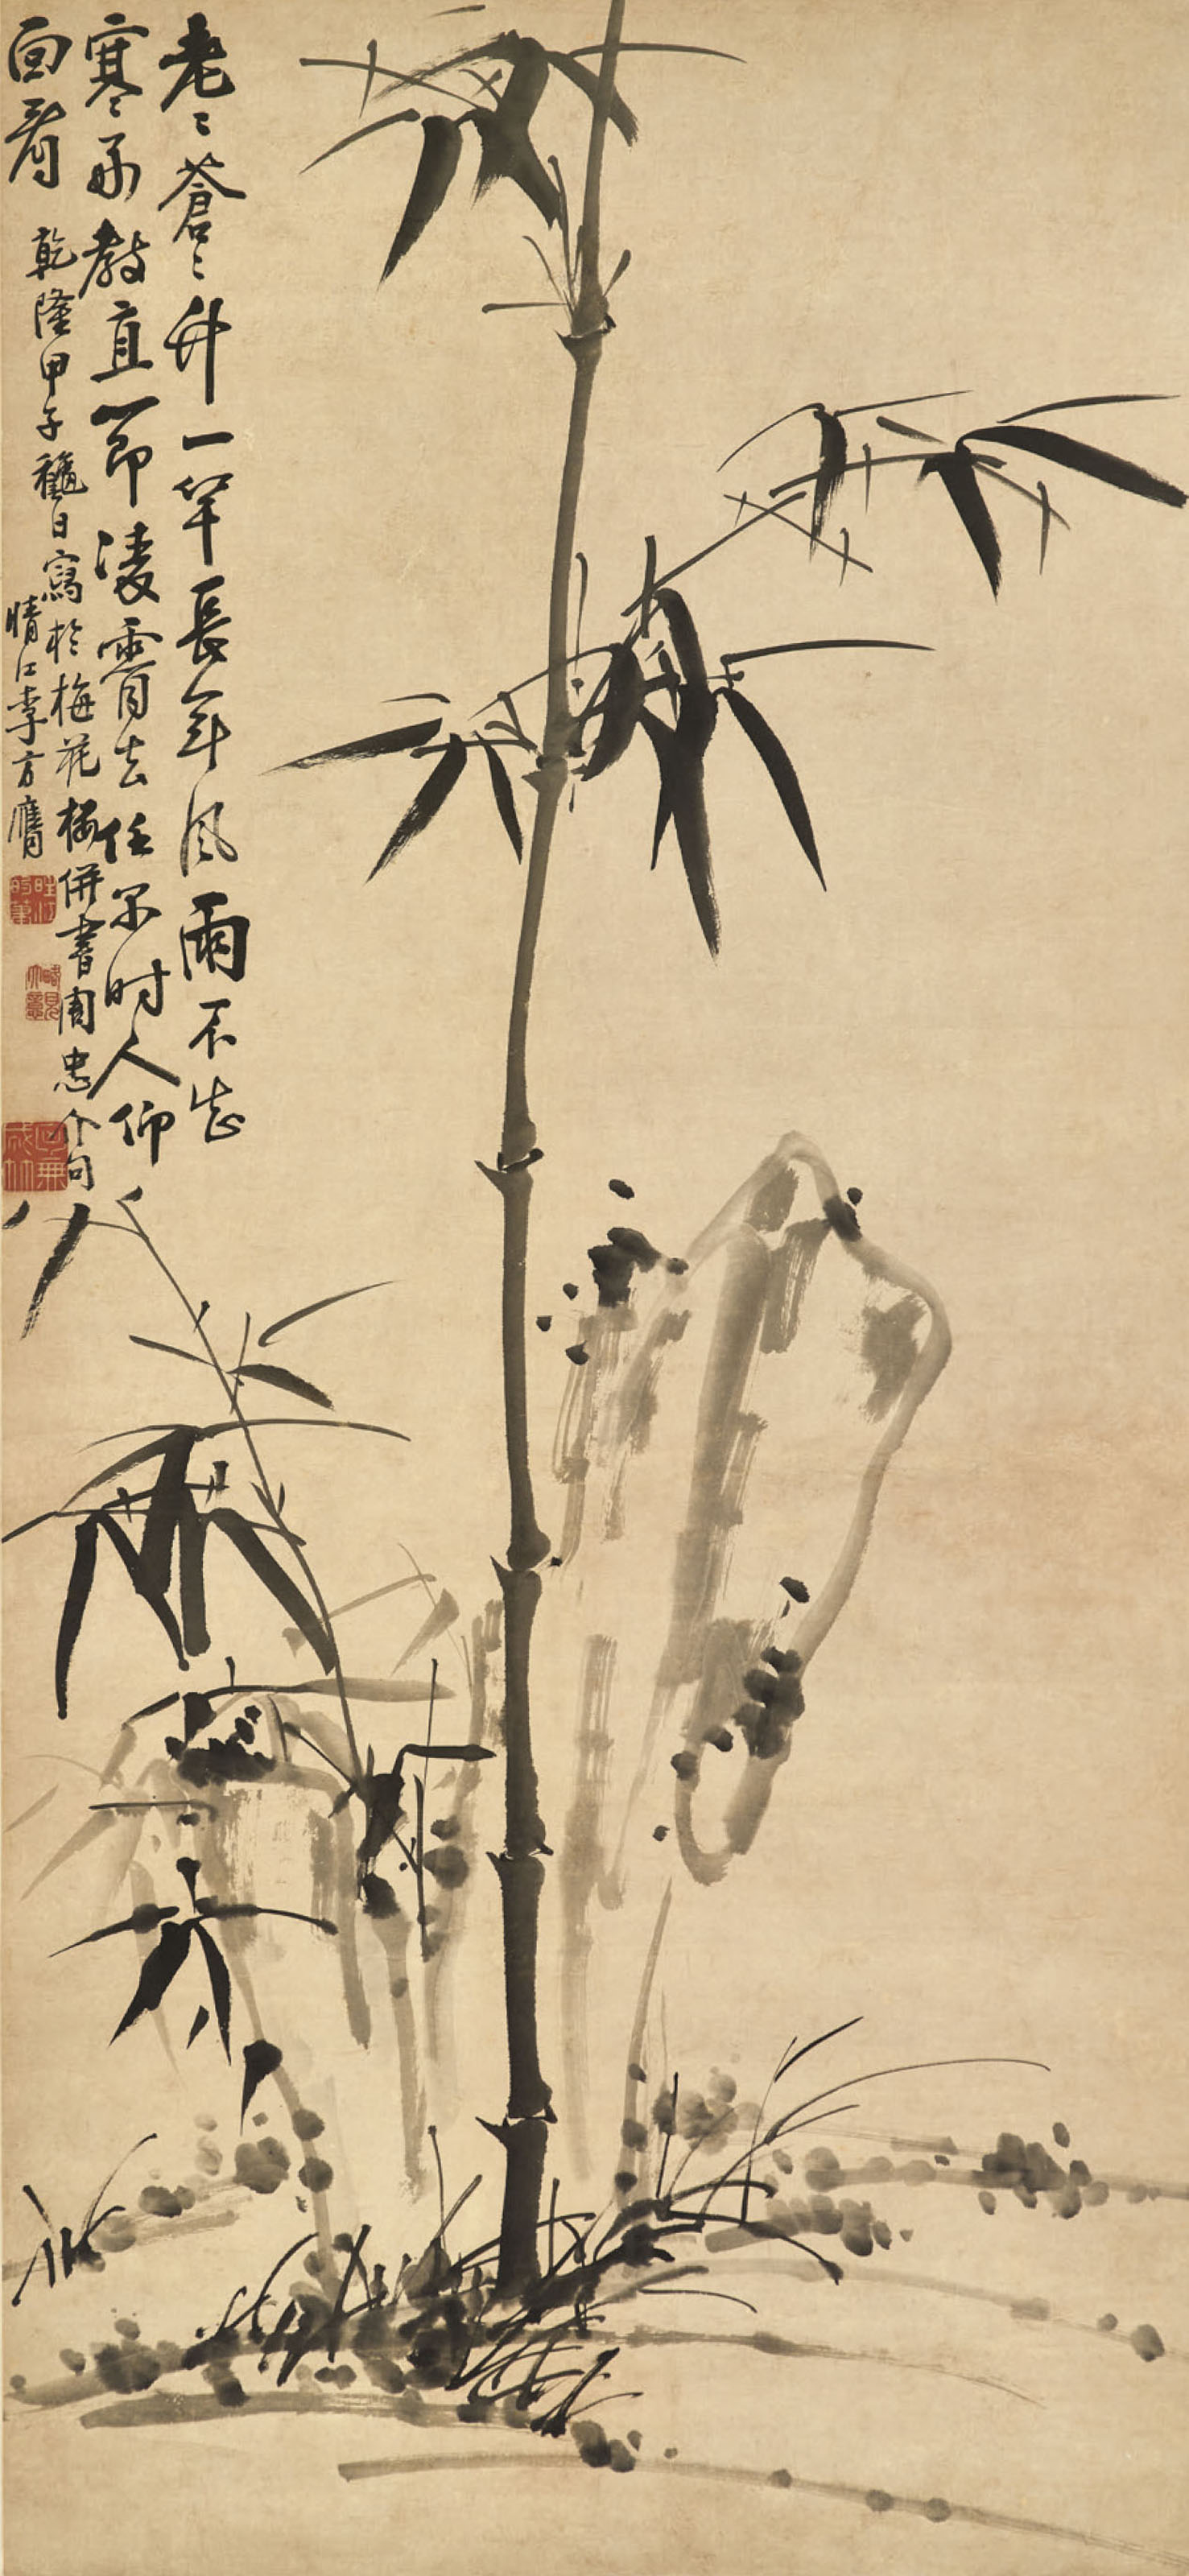 老〻蒼〻竹一竿長年風雨不知
寒好教直節凌霄去任尔时人仰
面看
乾隆甲子穐日寫於梅花樓併書周忠介句
晴江李方膺